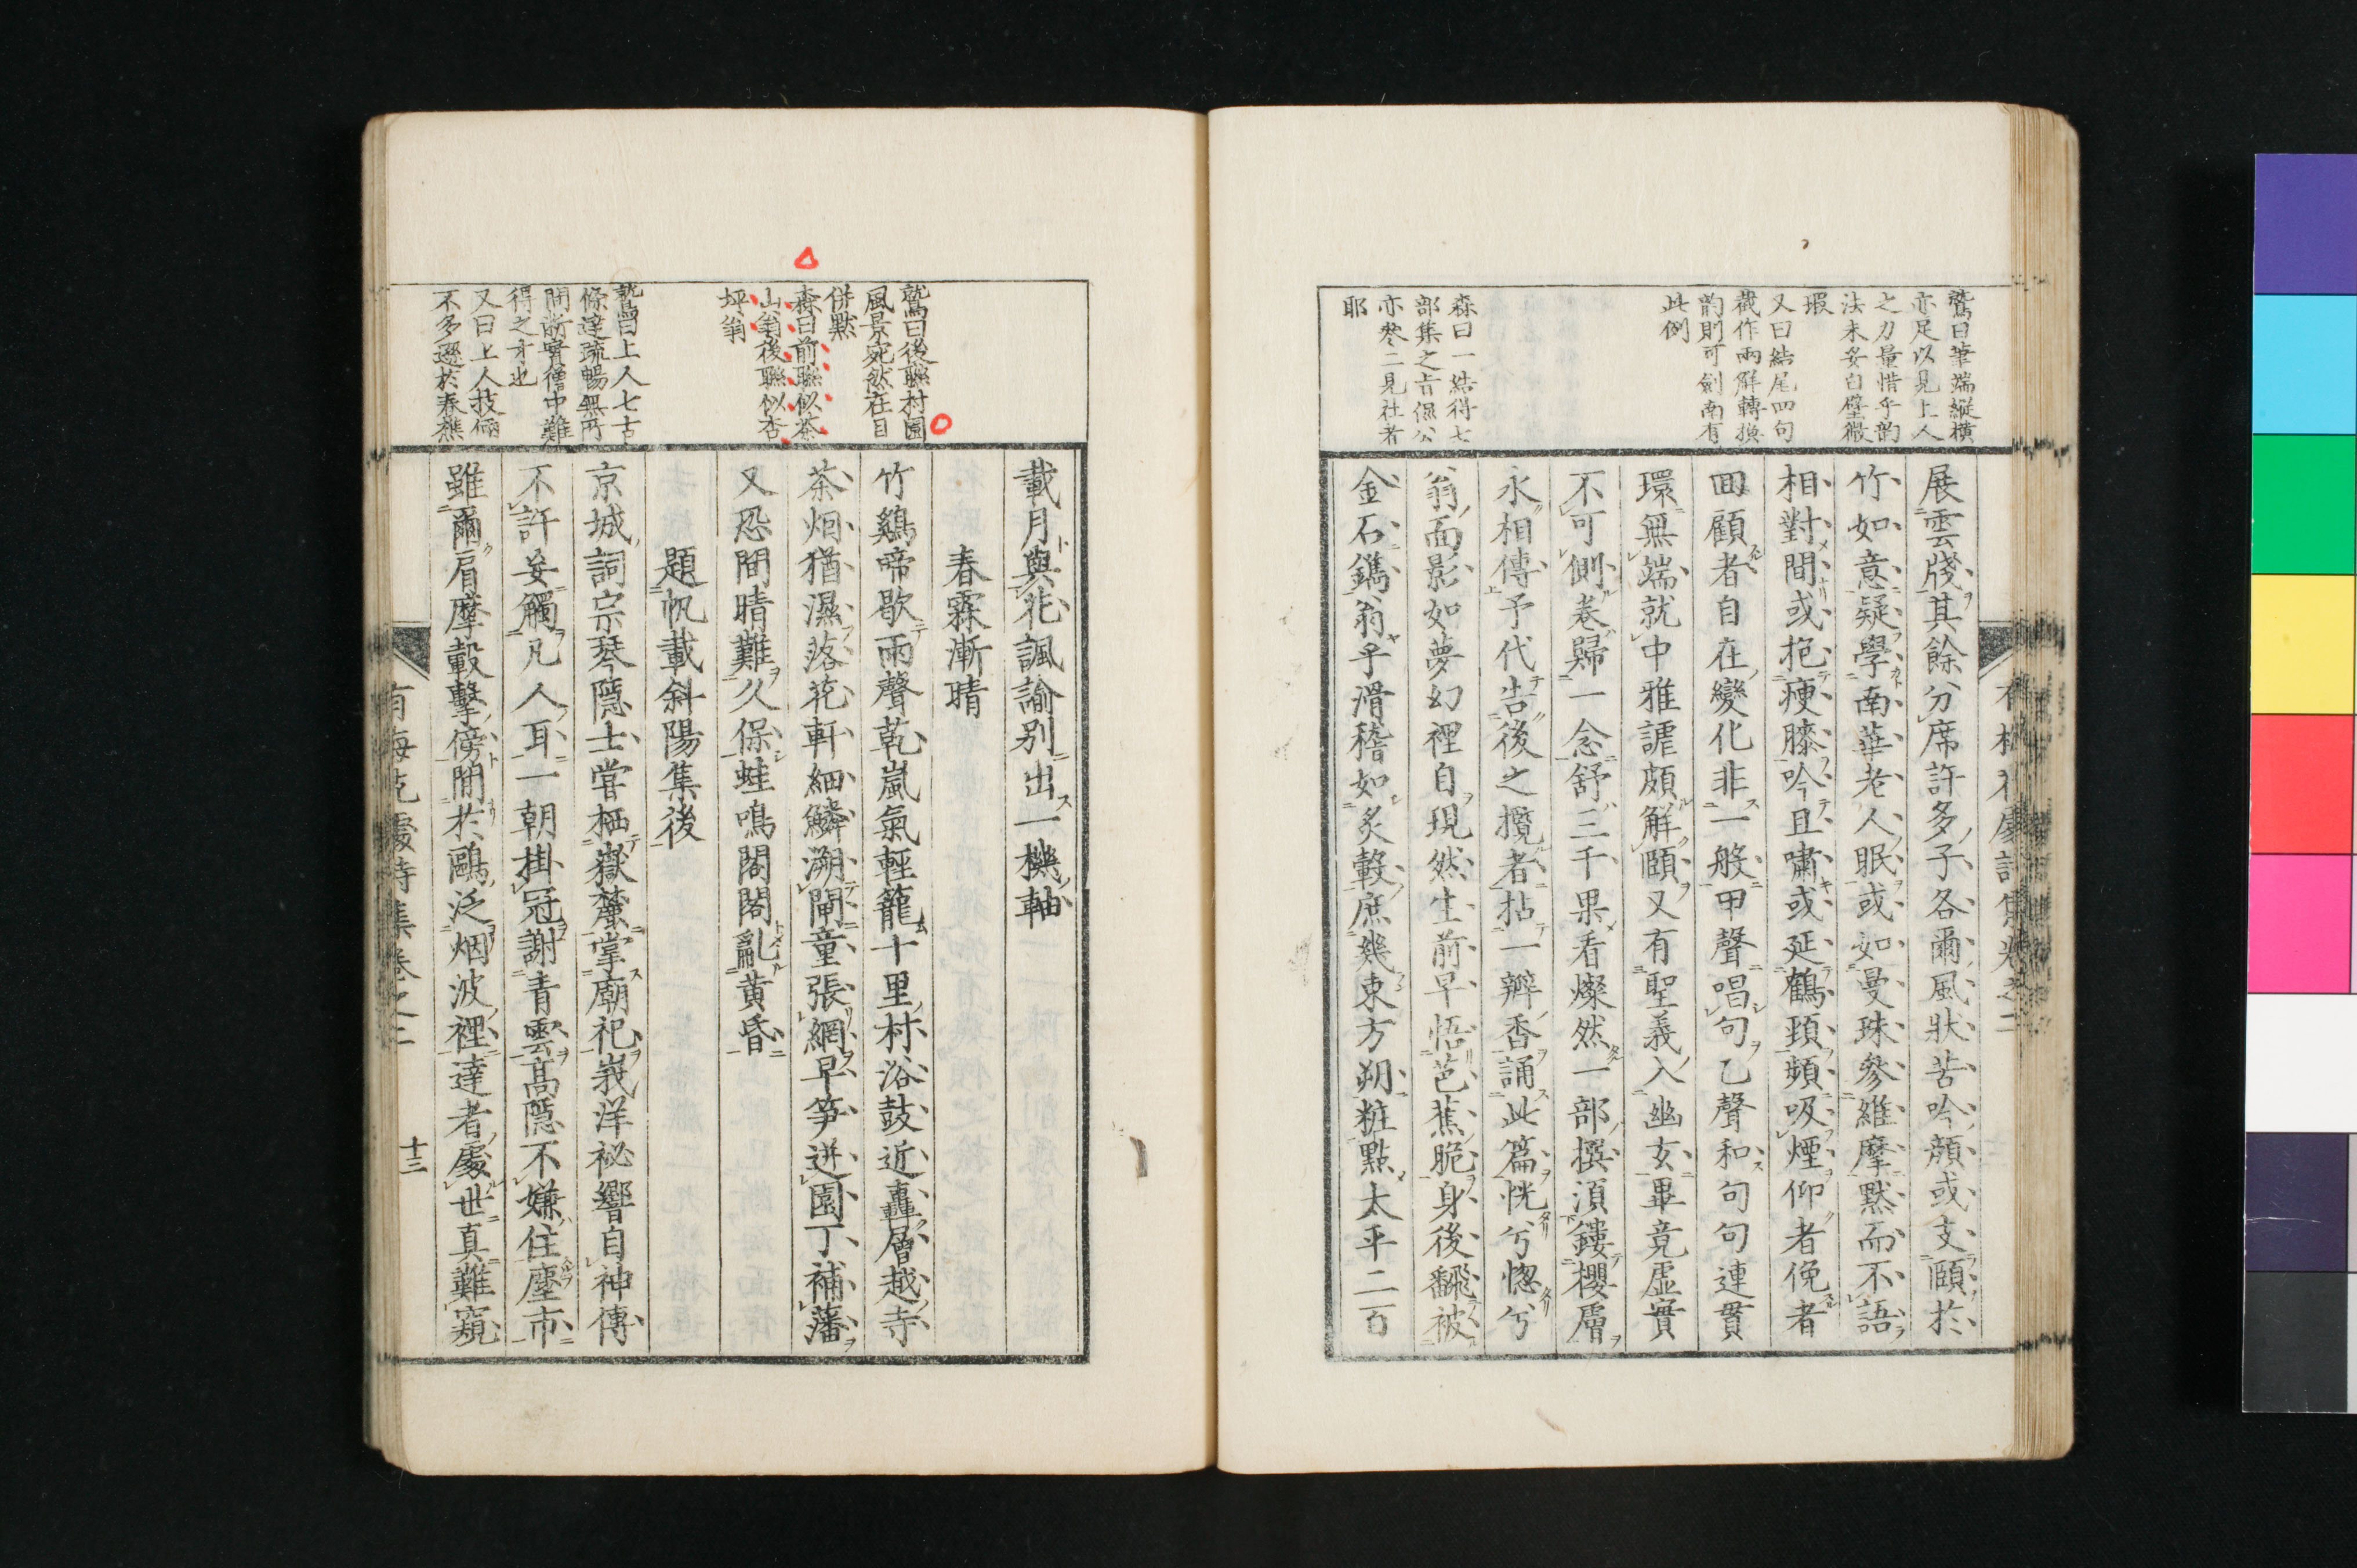 鷲曰筆端縱橫
亦足以見上人
之力量惜乎韵
法未妥白璧微
瑕
又曰結尾四句
截作兩解轉換
韵則可劍南有
此例
森曰一結得七
部集之旨保公
亦參二見社者
耶
展雲牋其餘分席許多子各爾風狀苦吟顏或支頤於
竹如意疑學南華老人眠或如曼珠參維摩默而不語
相對間或抱痩膝吟且嘯或延鶴頸頻吸煙仰者俛者
回顧者自在變化非一般甲聲唱句乙聲和句句連貫
環無端就中雅謔頗解頤又有聖義入幽玄畢竟虛實
不可側卷歸一念舒三千果看燦然一部撰湏鏤櫻層
永相傳予代告後之攬者拈一瓣香誦此篇恍兮惚兮
翁面影如夢幻裡自現然生前早悟芭蕉脆身後翻被
金石鐫翁乎滑稽如炙轂庶幾東方朔粧點太平二百
鷲曰後聯村園
風景宛然在目
併㸃
森曰前聯似茶
山翁後聯似杏
坪翁
鷲曰上人七古
條達疏暢無所
間斷實僧中難
得之才也
又曰上人技倆
不多遜於春樵
載月與花諷諭別出一機軸
春霖漸晴
竹鷄啼歇雨聲乾嵐氣輕籠十里村浴鼓近轟層越寺
茶烟猶濕落花軒細鱗溯閘童張網早笋迸園丁補藩
又恐間晴難久保蛙鳴閣閣亂黄昏
題帆載斜陽集後
京城詞宗琴隱士嘗栖嶽麓掌廟祀峩洋祕響自神傳
不許妄觸凡人耳一朝掛冠謝青雲高隱不嫌住塵市
雖爾肩摩轂擊傍間於鷗泛烟波裡達者處世真難窺
十三